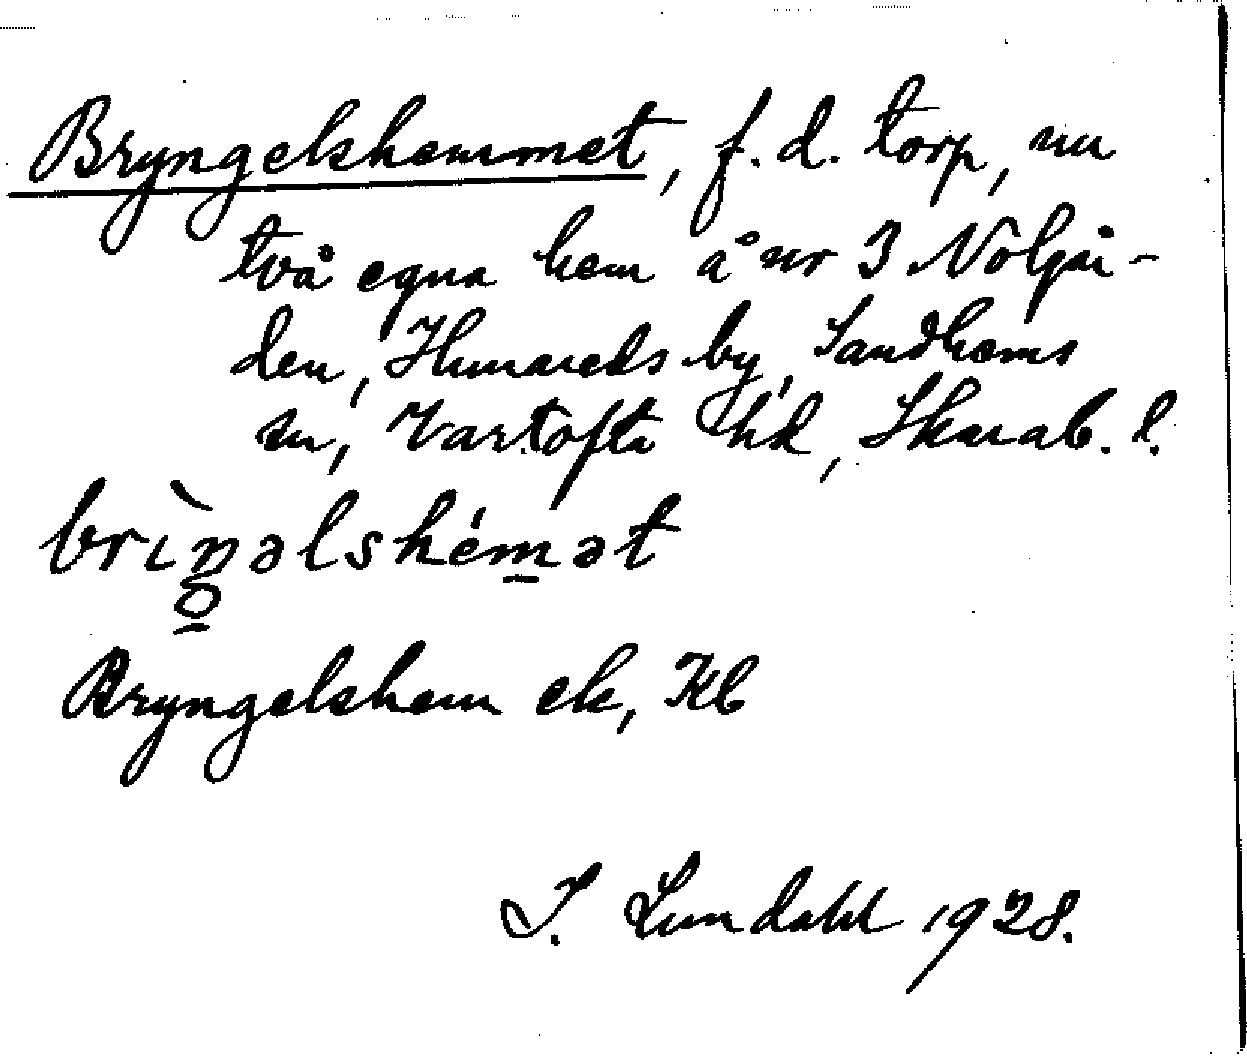 Bryngelshemmet, f. d. torp, nu
två egna hem å nr 3 Nolgår-
den, Hunareds by, Sandhems
sn, Vartofta hd, Skarab. l.
brìŋəlshémət
Bryngelshem ek, Kb
I. Lundahl 1928.